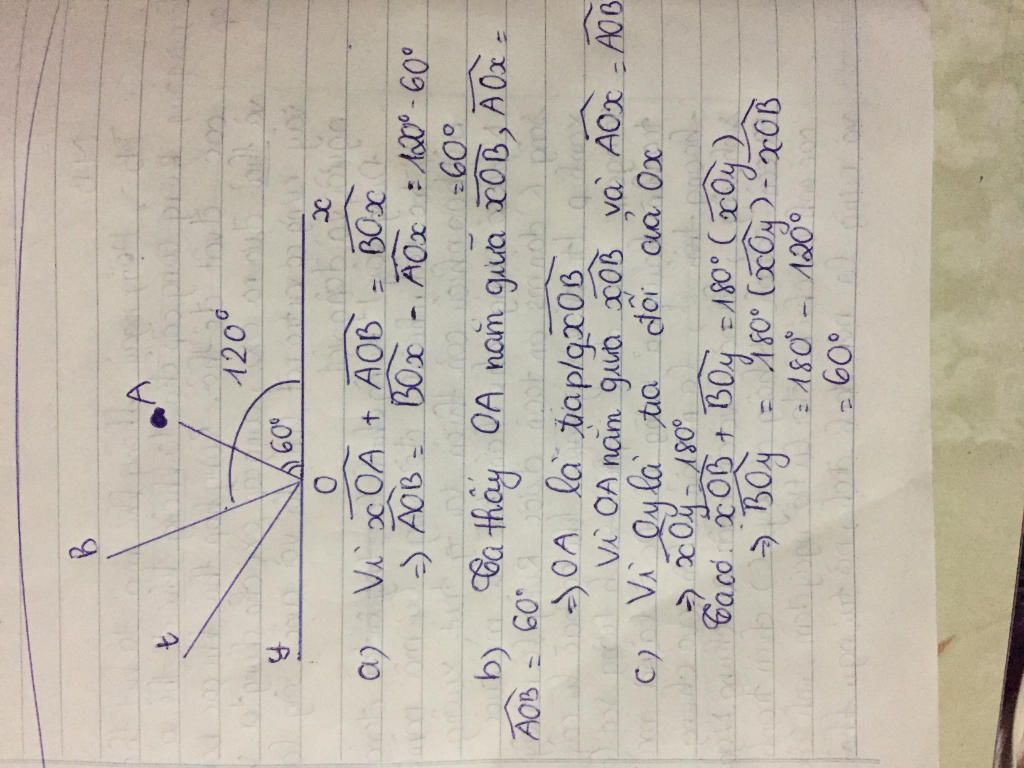 B
A
t
120°
60°
y
O
x
a) Vì xOA + AOB = BOx
=) AOB = BOx - AOx = 120° - 60°
= 60°
b) Ta thấy OA nằm giữa xOB, AOx =
AOB = 60°
=) OA là tiap/gxOB
Vì OA nằm giữa xOB và AOx = AOB
c) Vì Oy là tia đối của Ox
=) xOy = 180°
Ta có xOB + BOy = 180° (xOy)
=) BOy = 180° (xOy) - xOB
= 180° - 120°
= 60°